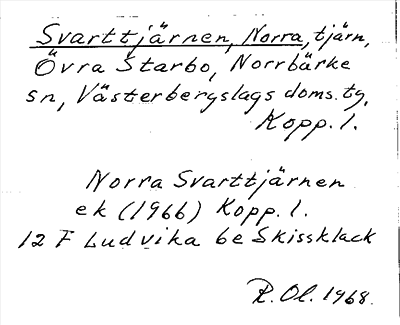 Svarttjärnen, Norra, tjärn,
Övra Starbo, Norrbärke
sn, Västerbergslags doms. tg,
Kopp. l.
Norra Svarttjärnen
ek (1966) Kopp. l.
12 F Ludvika 6e Skissklack
R. Ol. 1968.